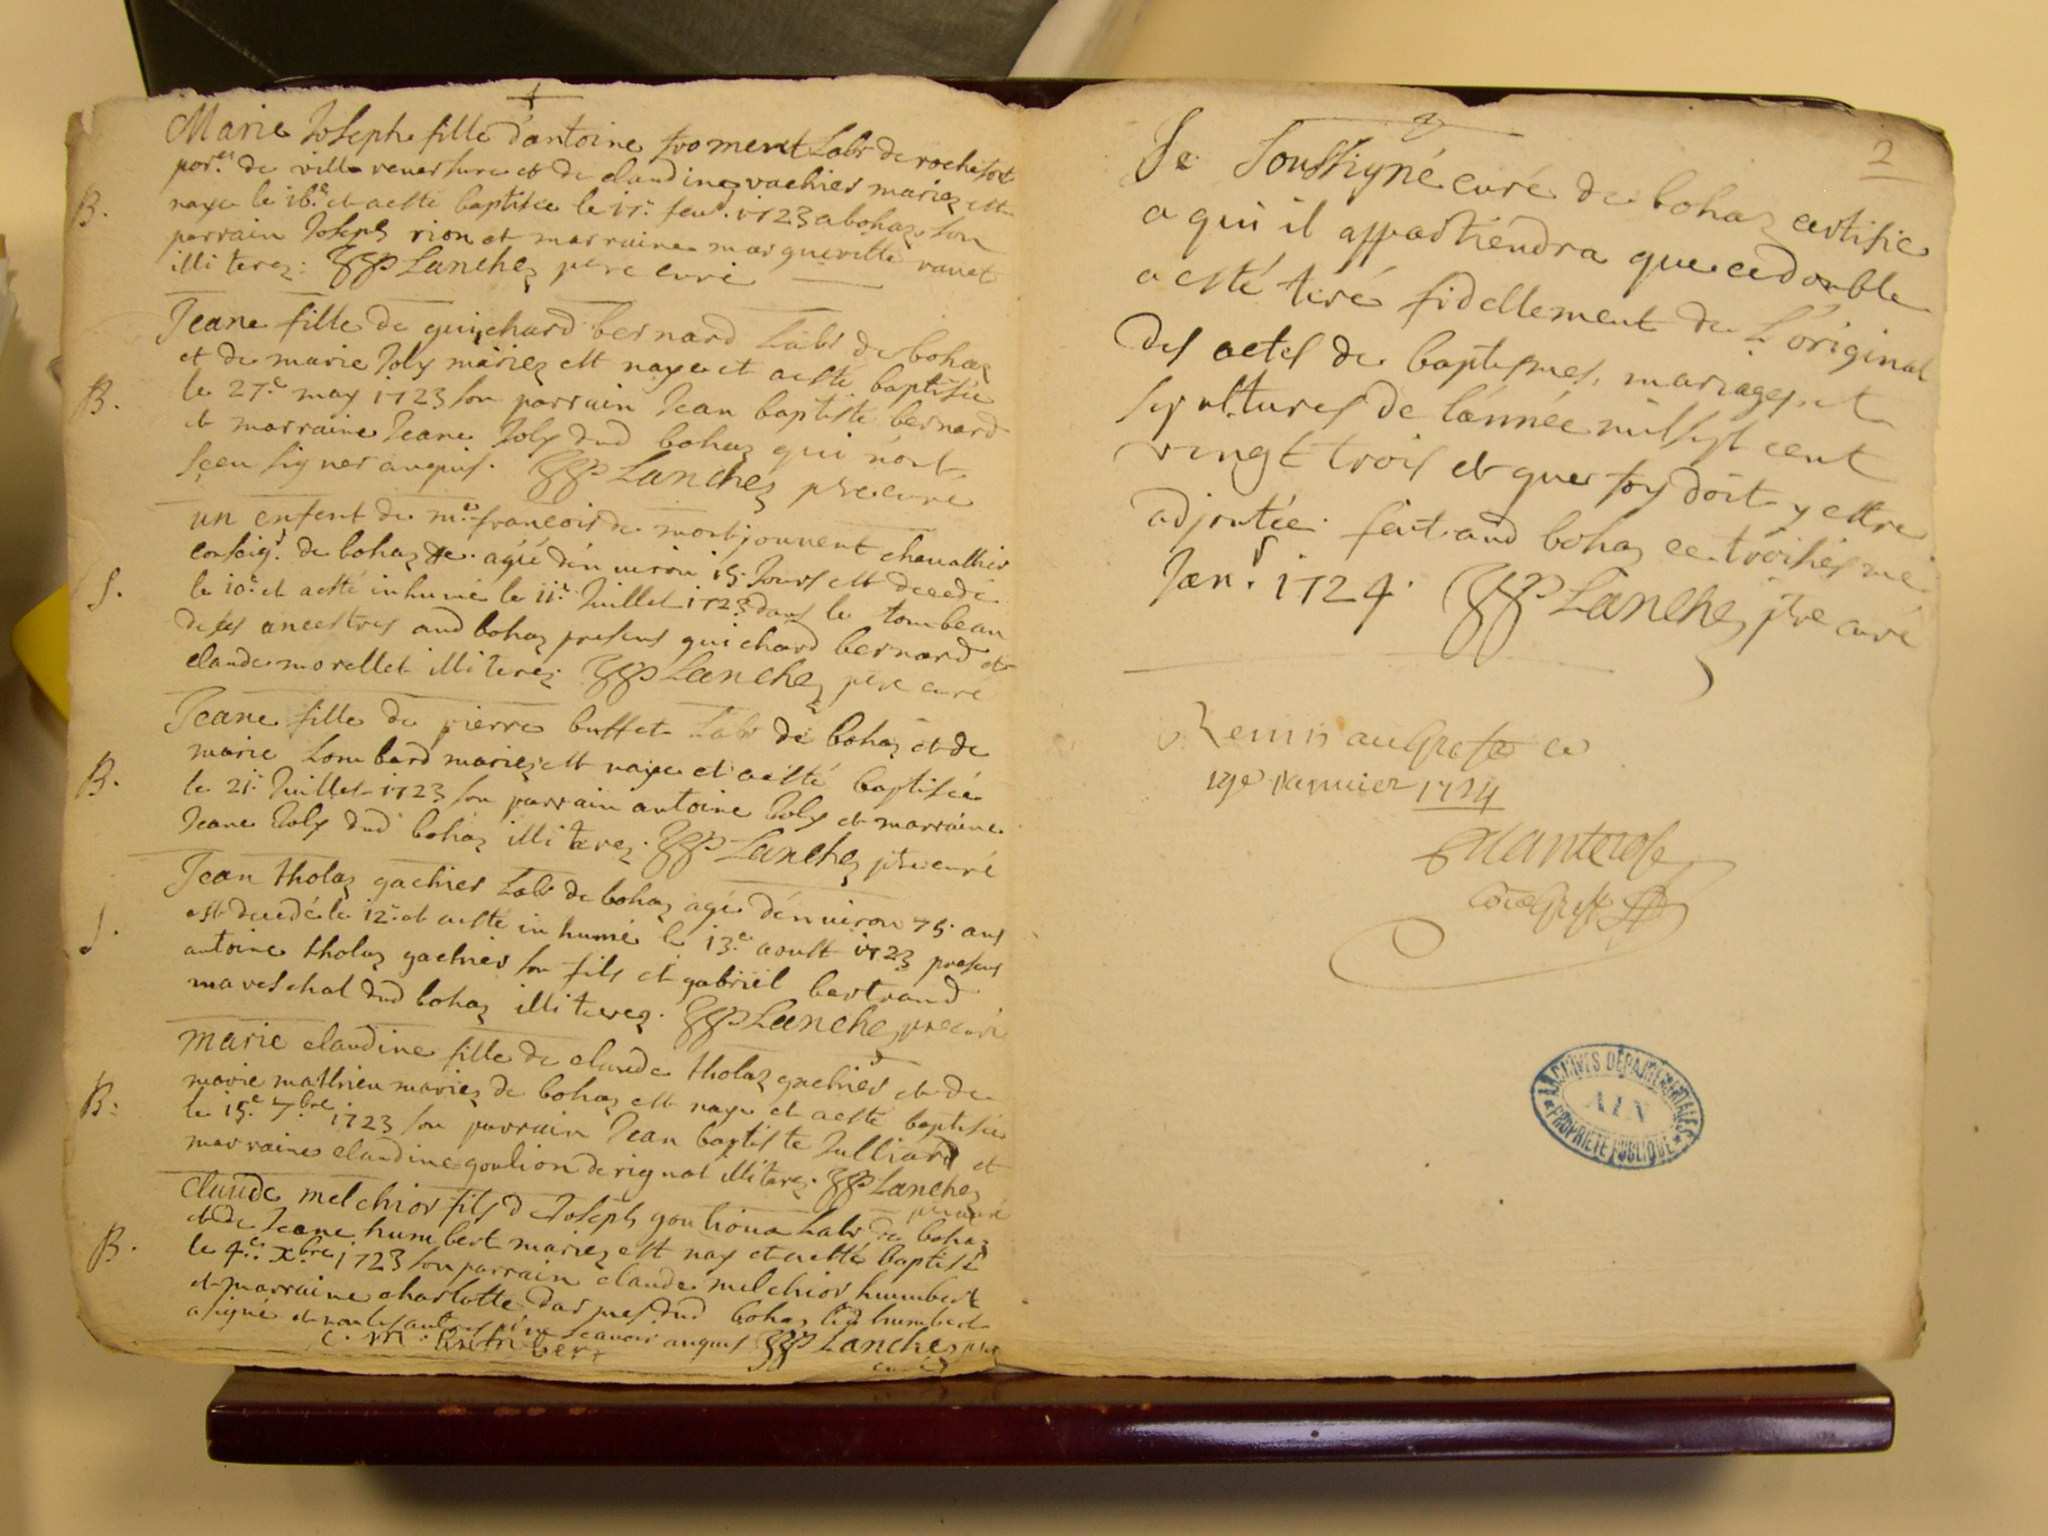 Marie Joseph fille d'antoine froment Labr de rochefort
par.se de ville reversure et de claudine vachier mariez est
B.
naye le 16.e et a esté baptisée le 17.e feu.r 1723 a bohaz son
parrain Joseph rion et marraine margueritte ravet
illiterez: JJP Lanchez ptre curé
Jeane fille de guichard bernard Labr de bohaz
et de marie Joly mariez est naye et a esté baptisée
B.
le 27.e may 1723 son parrain Jean baptiste bernard
et marraine Jeane Joly dud bohaz qui n'ont
sceu signer enquis. JJP Lanchez ptre curé
un enfent de m.re francois de montjouvent chevallier
conseig.r de bohaz &c. agé d'énuiron 15 Jours est decedé
S.
le 10.e et a esté inhumé le 11.e Juillet 1723 dans le tombeau
de ses ancestres aud bohaz presens guichard bernard et
claude morellet illiterez. JJP Lanchez ptre curé
Jeane fille de pierre buffet Labr de bohaz et de
marie Lombard mariez est naye et a esté baptisée
B.
le 21.e Juillet 1723 son parrain antoine Joly et marraine
Jeane Joly dud bohaz illiterez. JJP Lanchez ptre curé
Jean tholaz gachier Labr de bohaz agé d'énuiron 75 ans
S.
est decedé le 12.e et a esté inhumé le 13.e aoust 1723 presens
antoine tholaz gachier son fils et gabriel bertrand
mareschal dud bohaz illiterez. JJP Lanchez ptre curé
marie claudine fille de claude tholaz gachier et de
marie mathieu mariez de bohaz est naye et a esté baptisée
B:
le 15.e 7.bre 1723 son parrain Jean baptiste Julliard et
marraine claudine goulion de rignat illiterez. JJP Lanchez
ptre curé
claude melchior fils de Joseph gouliona Labr de bohaz
et de Jeane humbert mariez est nay et a esté baptisé
B.
le 4.e xbre 1723 son parrain claude melchior humbert
et marraine charlotte dud bohaz led humbert
a signé et non les autres p.r ne scavoir enquis JJP Lanchez ptre
c. m. humbert
curé
2
Je soussigné curé de bohaz certifie
a qui il appartiendra que ce double
a esté tiré fidellement de L'original
des actes de baptesmes, mariages, et
sepultures de l'année mil sept cent
vingt trois et que foy doit y estre
adjoutée. fait aud bohaz ce troisiesme
Jan.r 1724. JJP Lanchez ptre curé
Remis au Greffe ce
19e Januier 1724
ARCHIVES DÉPARTEMENTALES
AIN
PROPRIÉTÉ PUBLIQUE